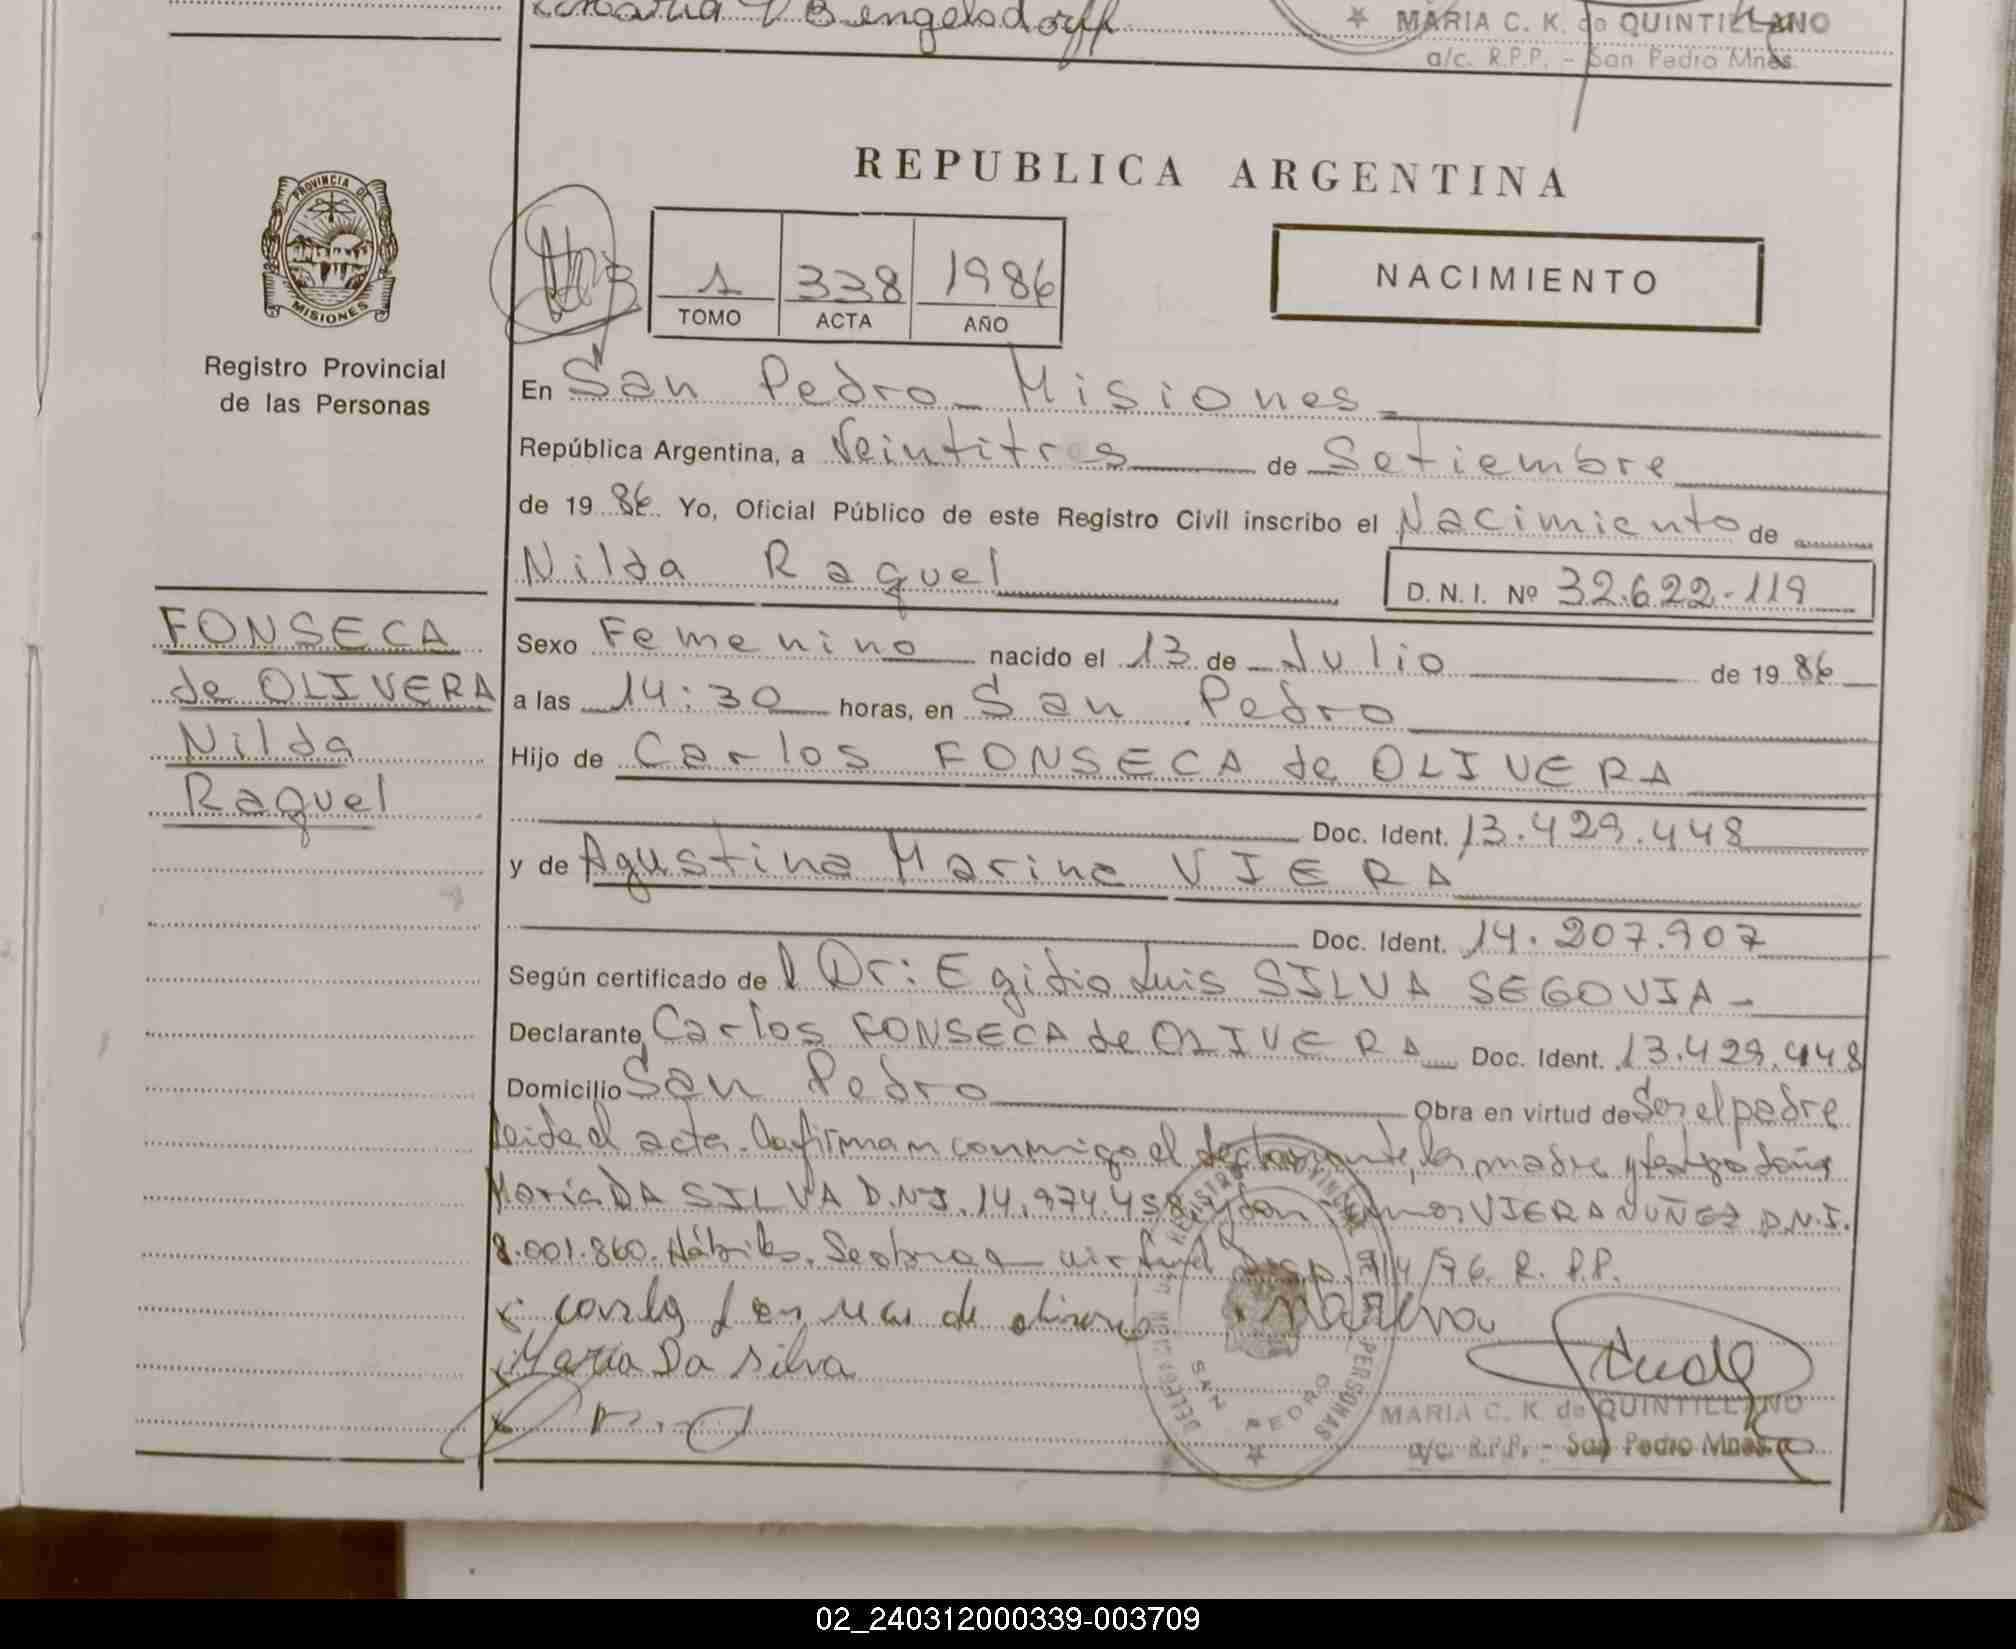 Bengelsdorff
MARIA C. K. de QUINTILLANO
a/c. R.P.P. - San Pedro Mnes.
REPUBLICA ARGENTINA
PROVINCIA DE
MISIONES
Registro Provincial
de las Personas
1 338 1986
TOMO ACTA AÑO
NACIMIENTO
En San Pedro - Misiones
República Argentina, a Veintitres de Setiembre
de 19 86 Yo, Oficial Público de este Registro Civil inscribo el Nacimiento de
Nilda Raquel D. N. I. Nº 32.622.119
FONSECA
de OLIVERA
Nilda
Raquel
Sexo Femenino nacido el 13 de Julio de 19 86
a las 14:30 horas, en San Pedro
Hijo de Carlos FONSECA de OLIVERA
Doc. Ident. 13.429.448
y de Agustina Marina VIERA
Doc. Ident. 14.207.907
Según certificado del Dr: Egidio Luis SILVA SEGOVIA -
Declarante Carlos FONSECA de OLIVERA Doc. Ident. 13.429.448
Domicilio San Pedro Obra en virtud de Ser el padre
Leida el acta. La firman conmigo el declarante, la madre y testigo doña
Maria DA SILVA D.N.I. 14.974.458 y don VIERA NUÑEZ D.N.I.
8.001.860. Hábiles. Se obra en virtud Disp. 7/4/76. R. P.P.
x de olivera Marina
x Maria Da silva
x
REGISTRO PROVINCIAL DE LAS PERSONAS
DELEGACION
SAN PEDRO
MARIA C. K. de QUINTILLANO
a/c. R.P.P. - San Pedro Mnes.
02_240312000339-003709